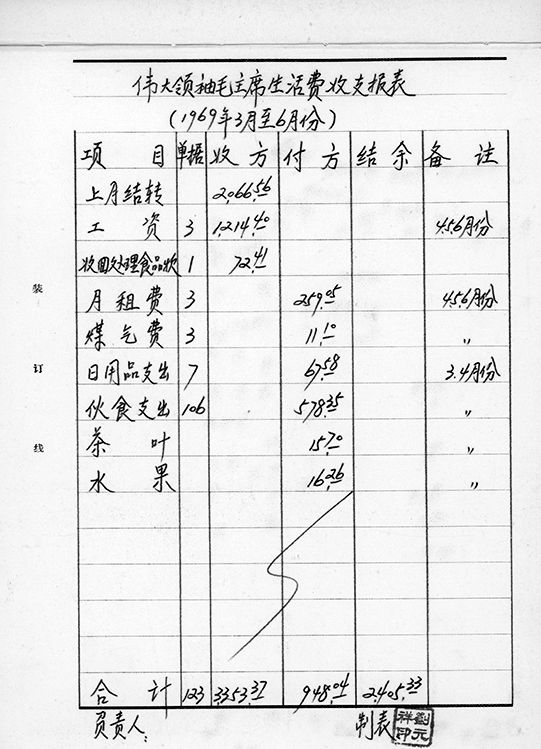 伟大领袖毛主席生活费收支报表
(1969年3月至6月份)
项目 单据 收方 付方 结余 备注
上月结转 2,066.56
工资 3 1,214.40 4.5.6月份
收回处理食品款 1 72.41
月租费 3 259.05 4.5.6月份
煤气费 3 11.10 〃
日用品支出 7 67.58 3.4月份
伙食支出 106 578.35 〃
茶叶 15.70 〃
水果 16.26 〃
合计 123 3,353.37 948.04 2,405.33
负责人: 制表 刘元祥印
装
订
线